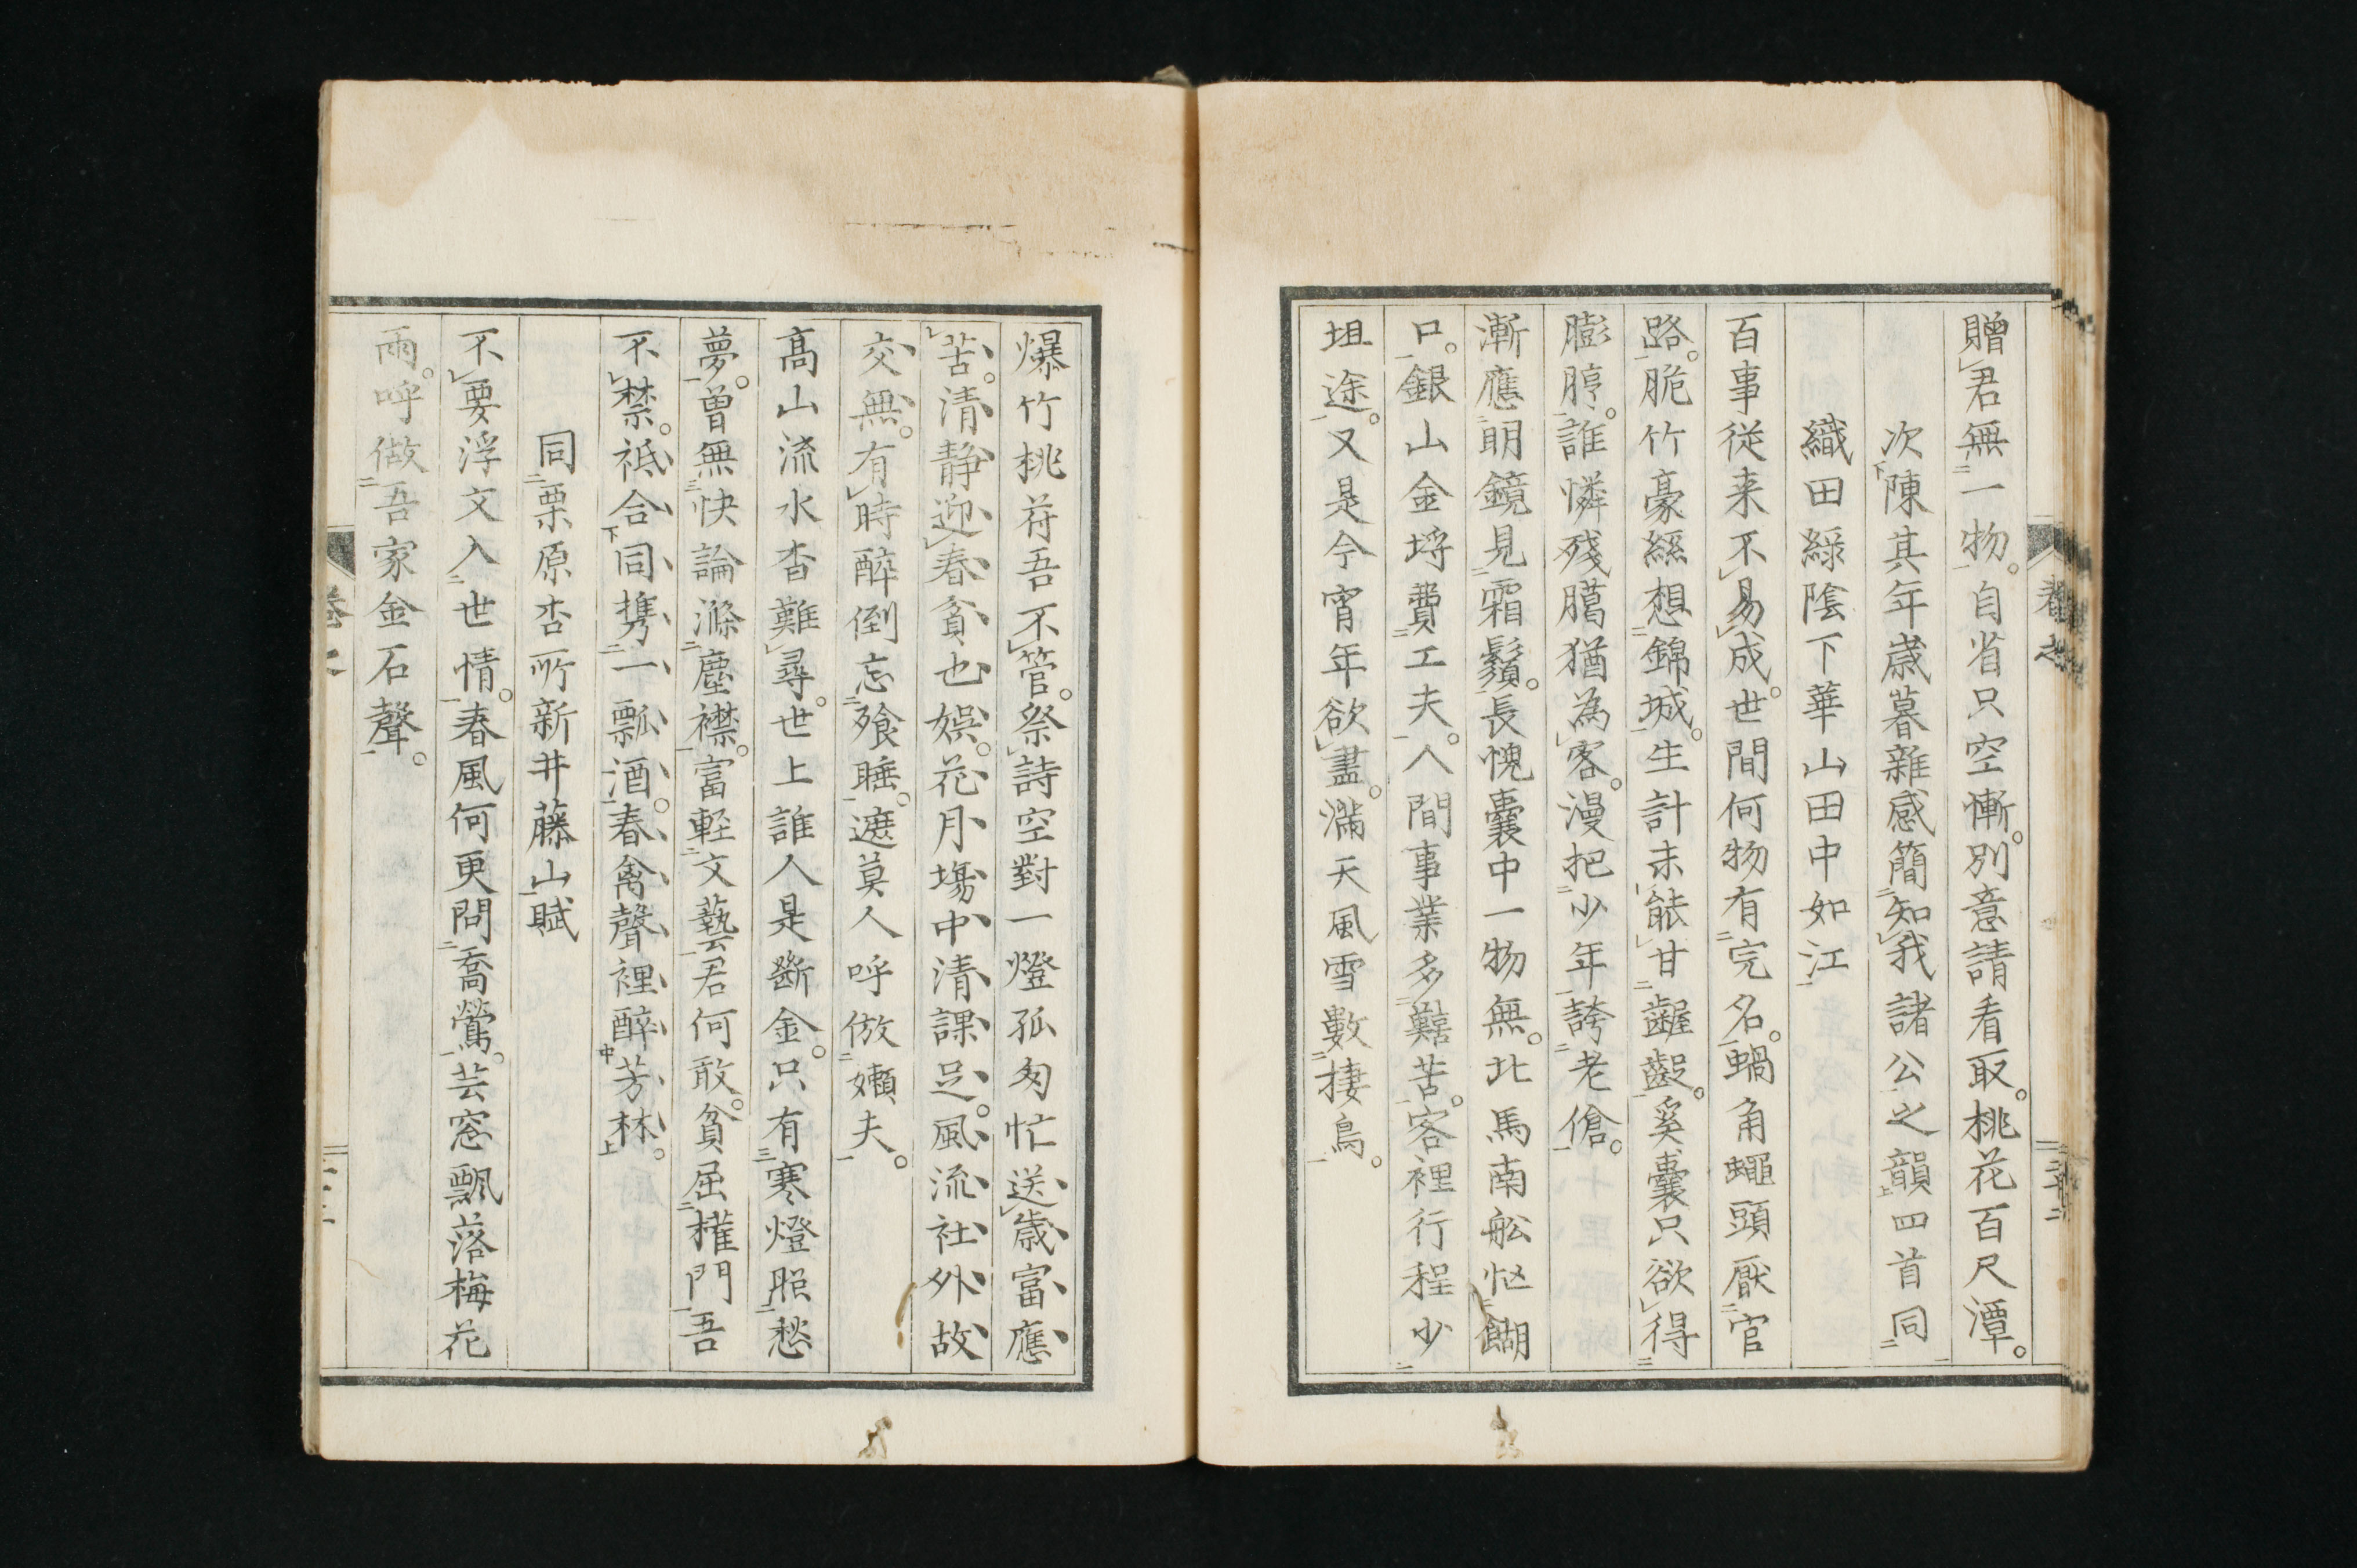 贈君無一物。自省只空慚。別意請看取。桃花百尺潭。
次陳其年歲暮雜感簡知我諸公之韻四首同
織田綠陰下華山田中如江
百事從来不易成。世間何物有完名。蝸角蠅頭厭官
路。脆竹豪絲想錦城。生計未能甘齷齪。奚囊只欲得
膨脝。誰憐殘臈猶為客。漫把少年誇老傖。
漸應明鏡見霜鬚。長愧囊中一物無。北馬南舩忙餬
口。銀山金埒費工夫。人間事業多艱苦。客裡行程少
坦途。又是今宵年欲盡。滿天風雪數棲烏。
爆竹桃符吾不管。祭詩空對一燈孤匆忙送歲富應
苦。清静迎春貧也娛。花月場中清課足。風流社外故
交無。有時醉倒忘飧睡。遮莫人呼倣嬾夫。
高山流水杳難尋。世上誰人是斷金。只有寒燈照愁
夢。曽無快論滌塵襟。富輕文藝君何敢。貧屈權門吾
不禁。袛合同携一瓢酒。春禽聲裡醉芳林。
同栗原杏所新井藤山賦
不要浮文入世情。春風何更問喬鶯。芸窓飄落梅花
雨。呼做吾家金石聲。